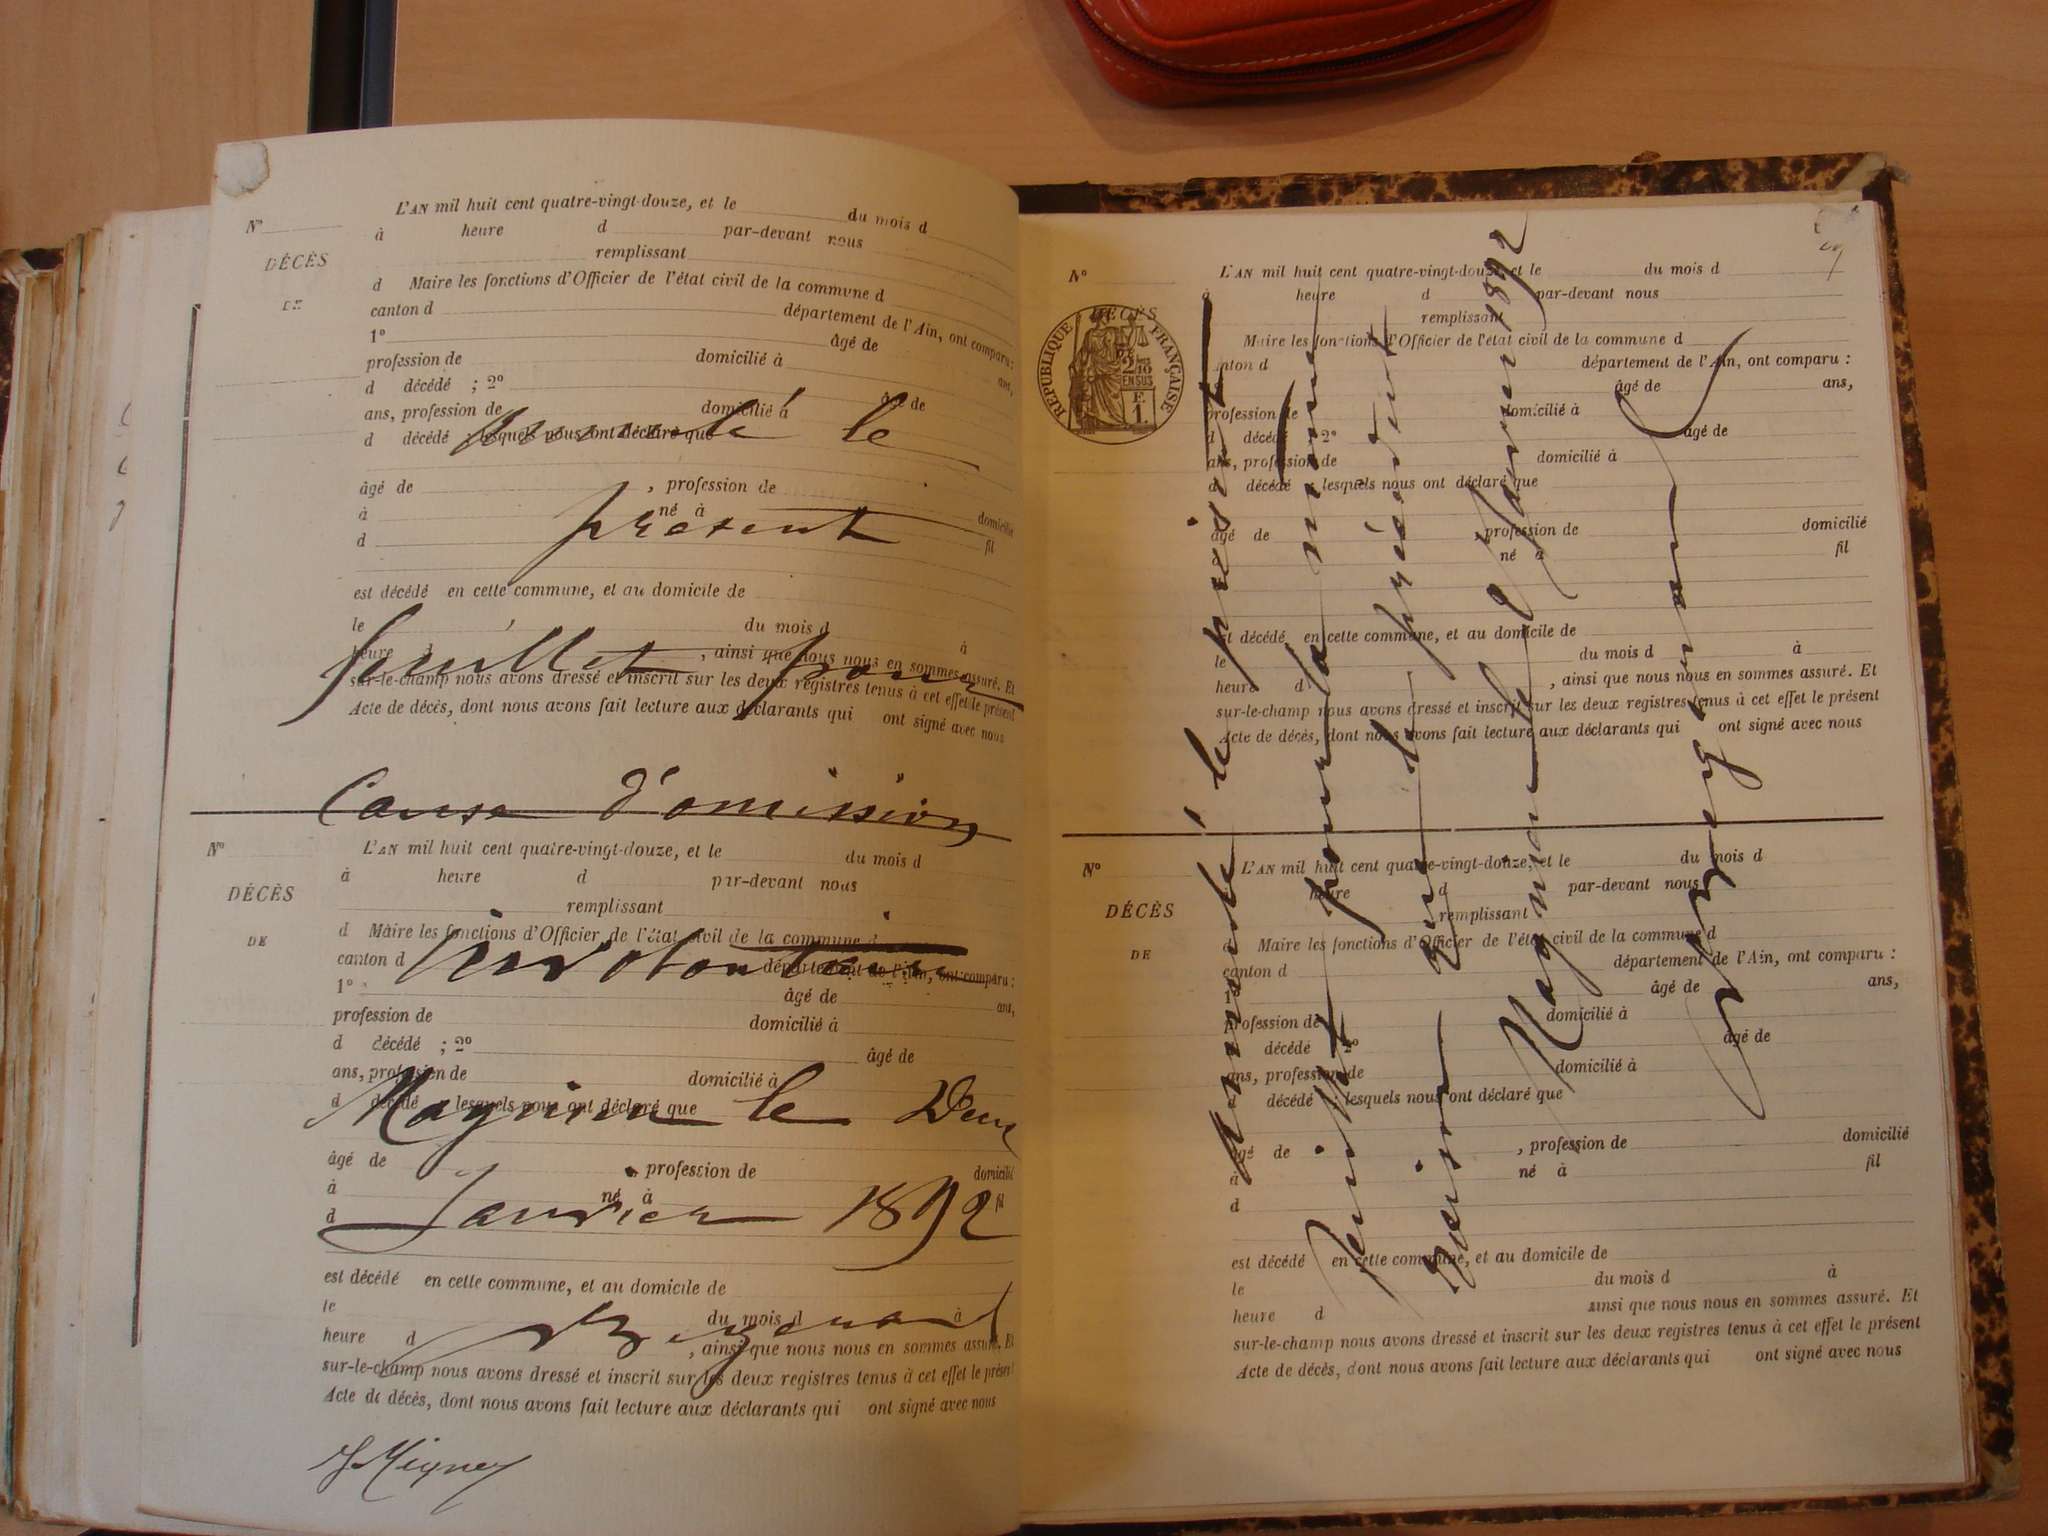 N°
L'AN mil huit cent quatre-vingt-douze, et le du mois d
à heure d par-devant nous
DÉCÈS
remplissant
d Maire les fonctions d'Officier de l'état civil de la commune d
DE
canton d département de l'Ain, ont comparu :
1° âgé de ans,
profession de domicilié à
d décédé ; 2° âgé de
ans, profession de domicilié à
d décédé ; lesquels nous ont déclaré que
Annulé le
âgé de , profession de domicilié
à né à fil
d
présent
est décédé en cette commune, et au domicile de
le du mois d à
heure d , ainsi que nous nous en sommes assuré. Et
feuillet pour
sur-le-champ nous avons dressé et inscrit sur les deux registres tenus à cet effet le présent
Acte de décès, dont nous avons fait lecture aux déclarants qui ont signé avec nous
Cause d'omission
N°
L'AN mil huit cent quatre-vingt-douze, et le du mois d
à heure d par-devant nous
DÉCÈS
remplissant
d Maire les fonctions d'Officier de l'état civil de la commune d
DE
involontaire
canton d département de l'Ain, ont comparu :
1° âgé de ans,
profession de domicilié à
d décédé ; 2° âgé de
ans, profession de domicilié à
d décédé ; lesquels nous ont déclaré que
le Deux
âgé de , profession de domicilié
à né à fil
d
Janvier 1892
est décédé en cette commune, et au domicile de
le du mois d à
heure d , ainsi que nous nous en sommes assuré. Et
sur-le-champ nous avons dressé et inscrit sur les deux registres tenus à cet effet le présent
Acte de décès, dont nous avons fait lecture aux déclarants qui ont signé avec nous
N°
L'AN mil huit cent quatre-vingt-douze, et le du mois d
à heure d par-devant nous
DÉCÈS
RÉPUBLIQUE FRANÇAISE
2/10 EN SUS
F. 1.
remplissant
Maire les fonctions d'Officier de l'état civil de la commune d
canton d département de l'Ain, ont comparu :
âgé de ans,
profession de domicilié à
d décédé 2° âgé de
ans, profession de domicilié à
d décédé ; lesquels nous ont déclaré que
âgé de profession de domicilié
né à fil
est décédé en cette commune, et au domicile de
le du mois d à
heure d , ainsi que nous nous en sommes assuré. Et
sur-le-champ nous avons dressé et inscrit sur les deux registres tenus à cet effet le présent
Acte de décès, dont nous avons fait lecture aux déclarants qui ont signé avec nous
N°
L'AN mil huit cent quatre-vingt-douze, et le du mois d
heure d par-devant nous
DÉCÈS
remplissant
d Maire les fonctions d'Officier de l'état civil de la commune d
DE
canton d département de l'Ain, ont comparu :
1° âgé de ans,
profession de domicilié à
décédé 2° âgé de
ans, profession de domicilié à
d décédé ; lesquels nous ont déclaré que
âgé de , profession de domicilié
à né à fil
d
est décédé en cette commune, et au domicile de
le du mois d à
heure d ainsi que nous nous en sommes assuré. Et
sur-le-champ nous avons dressé et inscrit sur les deux registres tenus à cet effet le présent
Acte de décès, dont nous avons fait lecture aux déclarants qui ont signé avec nous
Annulé le présent
feuillet pour la même
raison que le précédent
le 2 Janvier 1892